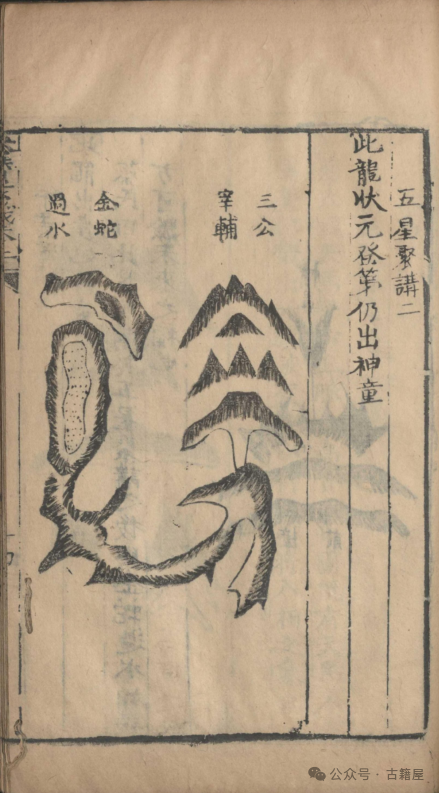 五星聚講二
此龍狀元登第仍出神童
三公
宰輔
金蛇
過水
公众号·古籍屋